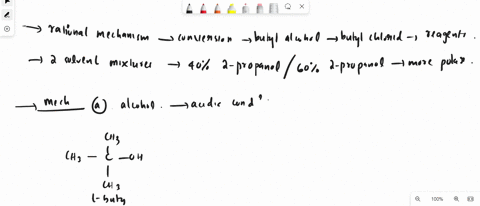 → rational mechanism → conversension → butyl alcohol → butyl chlorid → reagents
→ 2 solvent mixtures → 40% 2-propanol / 60% 2-propanol → more polar.
→ mech (a) alcohol → acidic condⁿ.
CH3
CH3 - C - OH
CH3
t-buty
100%